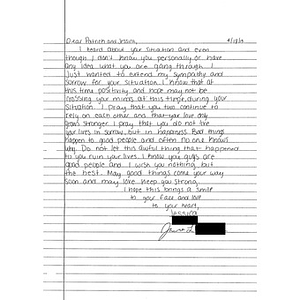 Dear Patrick and Jessica,
I heard about your situation and even
though I don't know you personally or have
any idea what you are going through. I
just wanted to extend my sympathy and
sorrow for your situation. I know that at
this time positivity and hope may not be
crossing your minds at this time, during your
situation. I pray that you two continue to
rely on each other and that your love only
grows stronger. I pray that you do not live
your lives in sorrow, but in happiness. Bad things
happen to good people and often no one knows
why. Do not let this awful thing that happened
to you ruin your lives. I know you guys are
good people and I wish you nothing but
the best. May good things come your way
soon and may love keep you strong.
I hope this brings a smile
to your face and love
to your heart,